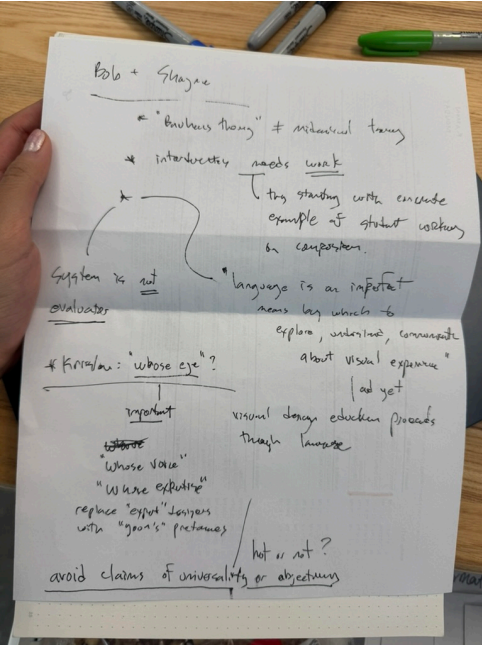 Bob + Shayne
* "Bauhaus theory" ≠ 
* introduction needs work
try starting with concrete
example of student working
on composition.
*
System is not
evaluator
"language is an important
means by which to
explore, understand, communicate
about visual experience"
and yet
visual design education proceeds
through language
* : "whose eye"?
important
"whose voice"
"whose expertise"
replace "expert" designers
with "goons"
hot or not?
avoid claims of universality or objectivity